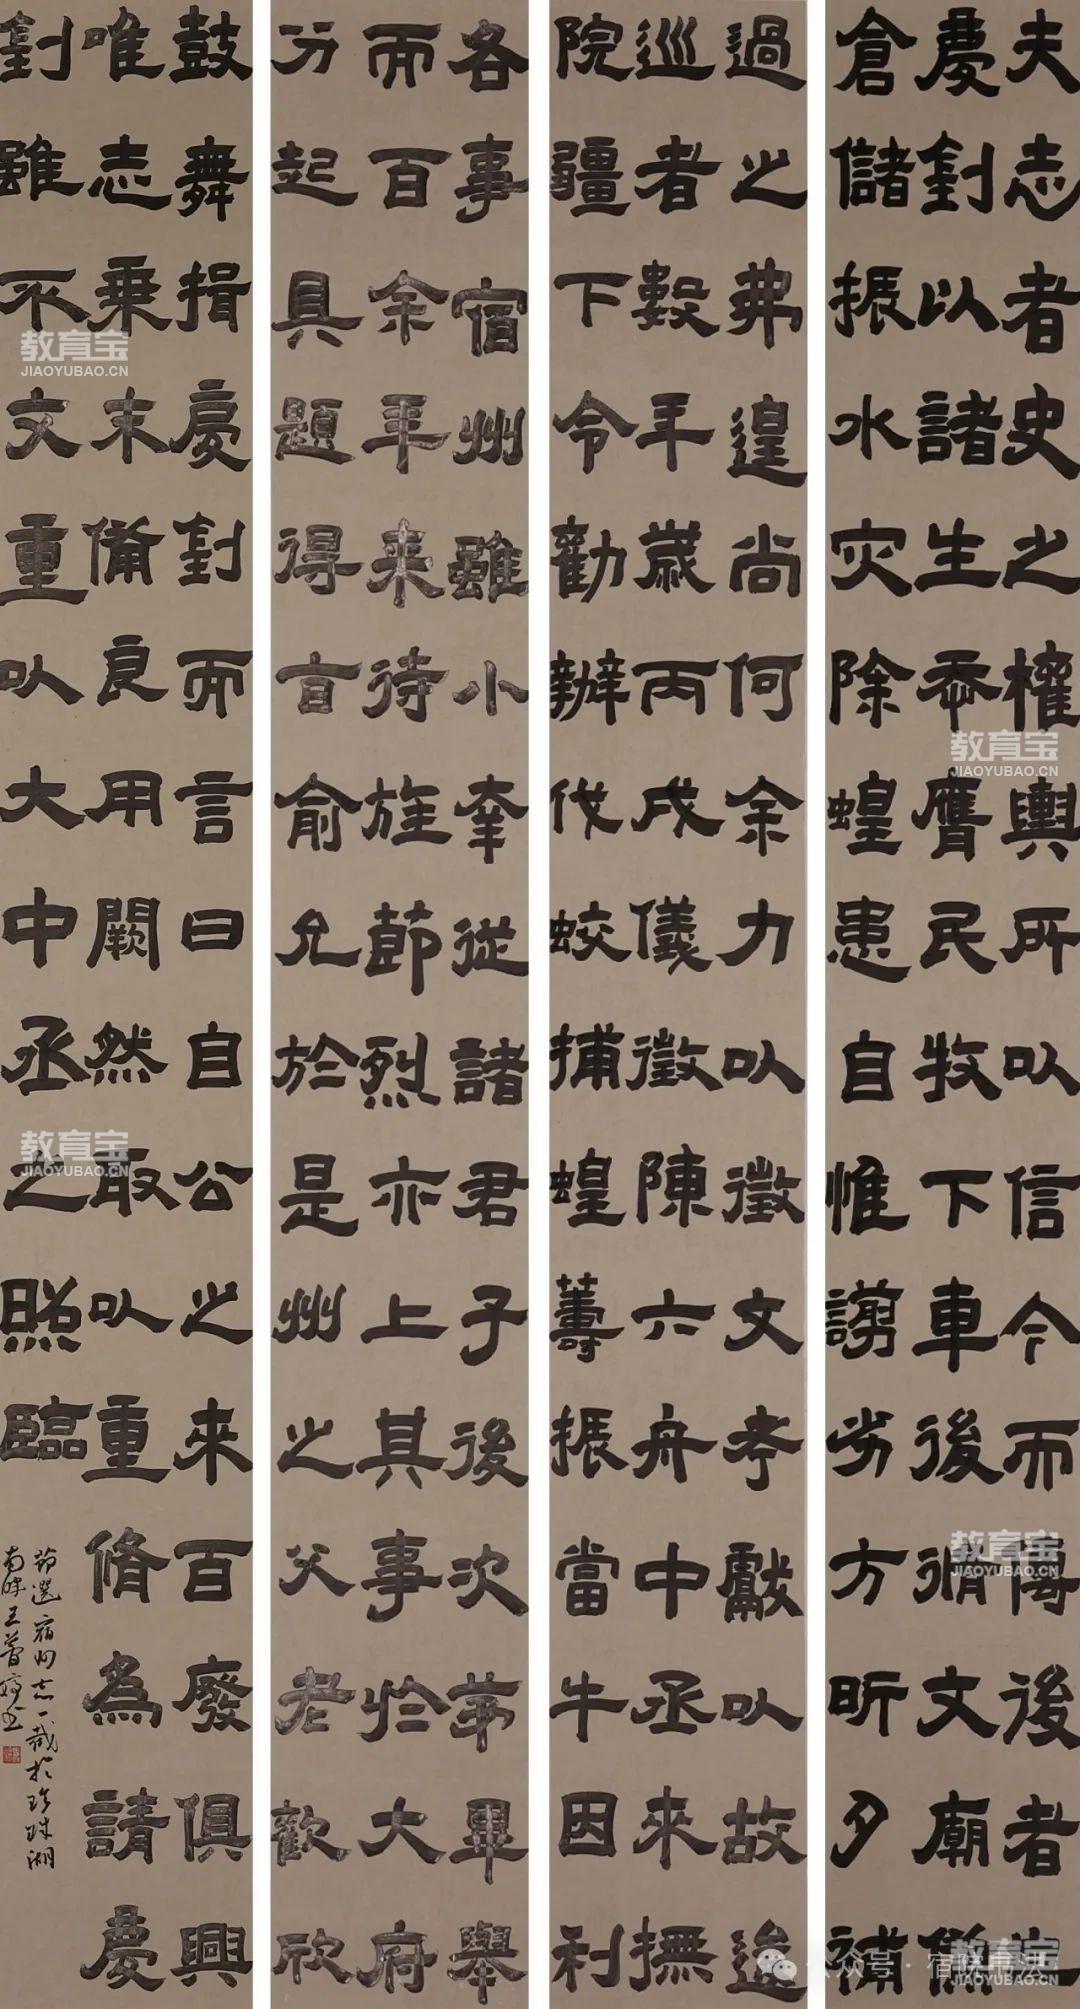 夫志者史之權輿所以信今而傳後者
慶釗以諸生忝膺民牧下車後脩文廟
倉儲振水灾除蝗患自惟謭劣方昕夕補
過之弗遑尚何余力以徵文考獻以故逡
巡者數年歲丙戌儀徵陳六舟中丞來撫
院疆下令勸辦伐蛟捕蝗籌振當牛因利
各事宿州雖小幸從諸君子後次苐畢舉
而百余年来待旌節烈亦上其事扵大府
分起具題得旨俞允於是州之父老歡欣
鼓舞揖慶釗而言曰自公之來百廢俱興
唯志乘未備良用闕然敢以重脩為請慶
釗雖不文重以大中丞之照臨
節選宿州志一裁於珍珠湖
南畔王書
教育宝
JIAOYUBAO.CN
教育宝
JIAOYUBAO.CN
教育宝
JIAOYUBAO.CN
教育宝
JIAOYUBAO.CN
教育宝
JIAOYUBAO.CN
公众号·宿院书法